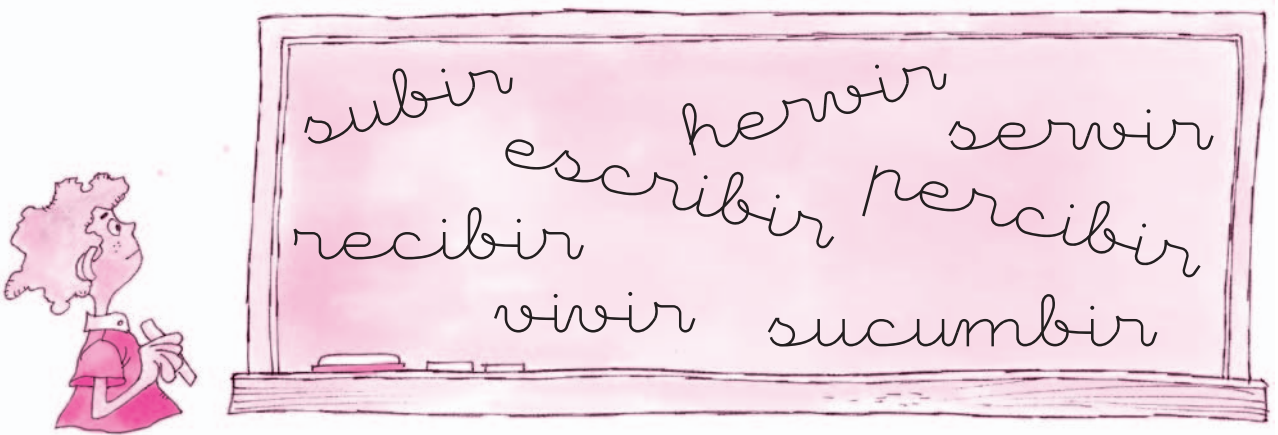 subir
hervir
servir
escribir
percibir
recibir
vivir
sucumbir